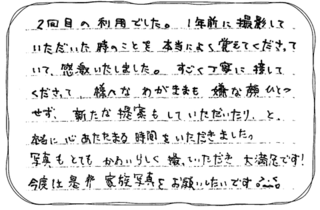 2回目の利用でした。1年前に撮影して
いただいた時のことを本当によく覚えてくださって
いて、感激いたしました。すごく丁寧に接して
くださって、様々なわがままも嫌な顔ひとつ
せず、新たな提案もしていただいたり、と
心あたたまる時間をいただきました。
写真もとてもかわいらしく撮っていただき大満足です!
今度は是非家族写真をお願いしたいです。